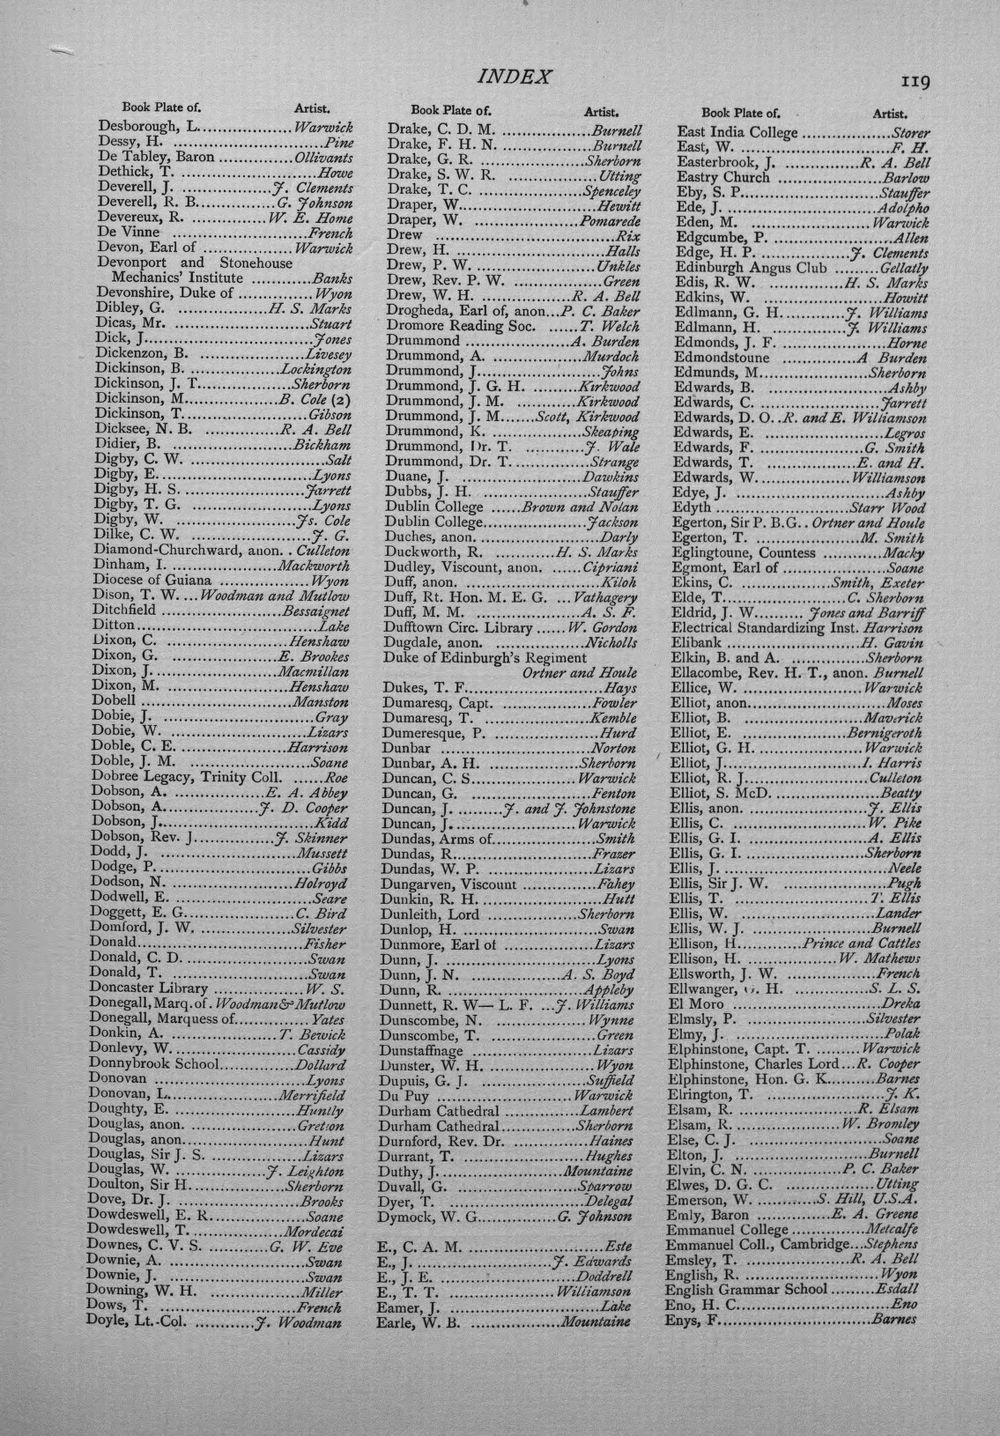 INDEX
119
Book Plate of. Artist.
Desborough, L. Warwick
Dessy, H. Pine
De Tabley, Baron Ollivants
Dethick, T. Howe
Deverell, J. J. Clements
Deverell, R. B. G. Johnson
Devereux, R. W. E. Home
De Vinne French
Devon, Earl of Warwick
Devonport and Stonehouse
Mechanics' Institute Banks
Devonshire, Duke of Wyon
Dibley, G. H. S. Marks
Dicas, Mr. Stuart
Dick, J. Jones
Dickenzon, B. Livesey
Dickinson, B. Lockington
Dickinson, J. T. Sherborn
Dickinson, M. B. Cole (2)
Dickinson, T. Gibson
Dicksee, N. B. R. A. Bell
Didier, B. Bickham
Digby, C. W. Salt
Digby, E. Lyons
Digby, H. S. Jarrett
Digby, T. G. Lyons
Digby, W. Js. Cole
Dilke, C. W. J. G.
Diamond-Churchward, anon. Culleton
Dinham, I. Mackworth
Diocese of Guiana Wyon
Dison, T. W. Woodman and Mutlow
Ditchfield Bessaignet
Ditton Lake
Dixon, C. Henshaw
Dixon, G. E. Brookes
Dixon, J. Macmillan
Dixon, M. Henshaw
Dobell Manston
Dobie, J. Gray
Dobie, W. Lizars
Doble, C. E. Harrison
Doble, J. M. Soane
Dobree Legacy, Trinity Coll. Roe
Dobson, A. E. A. Abbey
Dobson, A. J. D. Cooper
Dobson, J. Kidd
Dobson, Rev. J. J. Skinner
Dodd, J. Mussett
Dodge, P. Gibbs
Dodson, N. Holroyd
Dodwell, E. Seare
Doggett, E. G. C. Bird
Domford, J. W. Silvester
Donald Fisher
Donald, C. D. Swan
Donald, T. Swan
Doncaster Library W. S.
Donegall, Marq. of. Woodman & Mutlow
Donegall, Marquess of Yates
Donkin, A. T. Bewick
Donlevy, W. Cassidy
Donnybrook School Dollard
Donovan Lyons
Donovan, L. Merrifield
Doughty, E. Huntly
Douglas, anon. Greton
Douglas, anon. Hunt
Douglas, Sir J. S. Lizars
Douglas, W. J. Leighton
Doulton, Sir H. Sherborn
Dove, Dr. J. Brooks
Dowdeswell, E. R. Soane
Dowdeswell, T. Mordecai
Downes, C. V. S. G. W. Eve
Downie, A. Swan
Downie, J. Swan
Downing, W. H. Miller
Dows, T. French
Doyle, Lt.-Col. J. Woodman
Book Plate of. Artist.
Drake, C. D. M. Burnell
Drake, F. H. N. Burnell
Drake, G. R. Sherborn
Drake, S. W. R. Utting
Drake, T. C. Spenceley
Draper, W. Hewitt
Draper, W. Pomarede
Drew Rix
Drew, H. Halls
Drew, P. W. Unkles
Drew, Rev. P. W. Green
Drew, W. H. R. A. Bell
Drogheda, Earl of, anon. P. C. Baker
Dromore Reading Soc. T. Welch
Drummond A. Burden
Drummond, A. Murdoch
Drummond, J. Johns
Drummond, J. G. H. Kirkwood
Drummond, J. M. Kirkwood
Drummond, J. M. Scott, Kirkwood
Drummond, K. Skeaping
Drummond, Dr. T. J. Wale
Drummond, Dr. T. Strange
Duane, J. Dawkins
Dubbs, J. H. Stauffer
Dublin College Brown and Nolan
Dublin College Jackson
Duches, anon. Darly
Duckworth, R. H. S. Marks
Dudley, Viscount, anon. Cipriani
Duff, anon. Kiloh
Duff, Rt. Hon. M. E. G. Vathagery
Duff, M. M. A. S. F.
Dufftown Circ. Library W. Gordon
Dugdale, anon. Nicholls
Duke of Edinburgh's Regiment
Ortner and Houle
Dukes, T. F. Hays
Dumaresq, Capt. Fowler
Dumaresq, T. Kemble
Dumeresque, P. Hurd
Dunbar Norton
Dunbar, A. H. Sherborn
Duncan, C. S. Warwick
Duncan, G. Fenton
Duncan, J. J. and J. Johnstone
Duncan, J. Warwick
Dundas, Arms of Smith
Dundas, R. Frazer
Dundas, W. P. Lizars
Dungarven, Viscount Fahey
Dunkin, R. H. Hutt
Dunleith, Lord Sherborn
Dunlop, H. Swan
Dunmore, Earl of Lizars
Dunn, J. Lyons
Dunn, J. N. A. S. Boyd
Dunn, R. Appleby
Dunnett, R. W— L. F. J. Williams
Dunscombe, N. Wynne
Dunscombe, T. Green
Dunstaffnage Lizars
Dunster, W. H. Wyon
Dupuis, G. J. Suffield
Du Puy Warwick
Durham Cathedral Lambert
Durham Cathedral Sherborn
Durnford, Rev. Dr. Haines
Durrant, T. Hughes
Duthy, J. Mountaine
Duvall, G. Sparrow
Dyer, T. Delegal
Dymock, W. G. G. Johnson
E., C. A. M. Este
E., J. J. Edwards
E., J. E. Doddrell
E., T. T. Williamson
Eamer, J. Lake
Earle, W. B. Mountaine
Book Plate of. Artist.
East India College Storer
East, W. F. H.
Easterbrook, J. R. A. Bell
Eastry Church Barlow
Eby, S. P. Stauffer
Ede, J. Adolpho
Eden, M. Warwick
Edgcumbe, P. Allen
Edge, H. P. J. Clements
Edinburgh Angus Club Gellatly
Edis, R. W. H. S. Marks
Edkins, W. Howitt
Edlmann, G. H. J. Williams
Edlmann, H. J. Williams
Edmonds, J. F. Horne
Edmondstoune A Burden
Edmunds, M. Sherborn
Edwards, B. Ashby
Edwards, C. Jarrett
Edwards, D. O. R. and E. Williamson
Edwards, E. Legros
Edwards, F. G. Smith
Edwards, T. E. and H.
Edwards, W. Williamson
Edye, J. Ashby
Edyth Starr Wood
Egerton, Sir P. B.G. Ortner and Houle
Egerton, T. M. Smith
Eglingtoune, Countess Macky
Egmont, Earl of Soane
Ekins, C. Smith, Exeter
Elde, T. C. Sherborn
Eldrid, J. W. Jones and Barriff
Electrical Standardizing Inst. Harrison
Elibank H. Gavin
Elkin, B. and A. Sherborn
Ellacombe, Rev. H. T., anon. Burnell
Ellice, W. Warwick
Elliot, anon. Moses
Elliot, B. Maverick
Elliot, E. Bernigeroth
Elliot, G. H. Warwick
Elliot, J. I. Harris
Elliot, R. J. Culleton
Elliot, S. McD. Beatty
Ellis, anon. J. Ellis
Ellis, C. W. Pike
Ellis, G. I. A. Ellis
Ellis, G. I. Sherborn
Ellis, J. Neele
Ellis, Sir J. W. Pugh
Ellis, T. T. Ellis
Ellis, W. Lander
Ellis, W. J. Burnell
Ellison, H. Prince and Cattles
Ellison, H. W. Mathews
Ellsworth, J. W. French
Ellwanger, G. H. S. L. S.
El Moro Dreka
Elmsly, P. Silvester
Elmy, J. Polak
Elphinstone, Capt. T. Warwick
Elphinstone, Charles Lord R. Cooper
Elphinstone, Hon. G. K. Barnes
Elrington, T. J. K.
Elsam, R. R. Elsam
Elsam, R. W. Bromley
Else, C. J. Soane
Elton, J. Burnell
Elvin, C. N. P. C. Baker
Elwes, D. G. C. Utting
Emerson, W. S. Hill, U.S.A.
Emly, Baron E. A. Greene
Emmanuel College Metcalfe
Emmanuel Coll., Cambridge Stephens
Emsley, T. R. A. Bell
English, R. Wyon
English Grammar School Esdall
Eno, H. C. Eno
Enys, F. Barnes